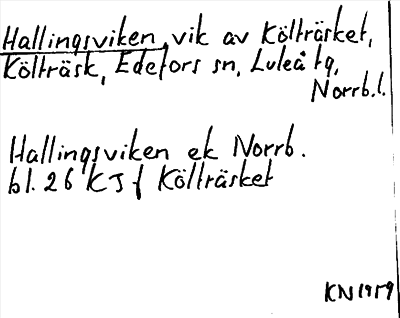 Hallingsviken, vik av Költräsket,
Költräsk, Edefors sn, Luleå tg,
Norrb.l.
Hallingsviken ek Norrb.
bl. 26 KJf Költräsket
KN 1959